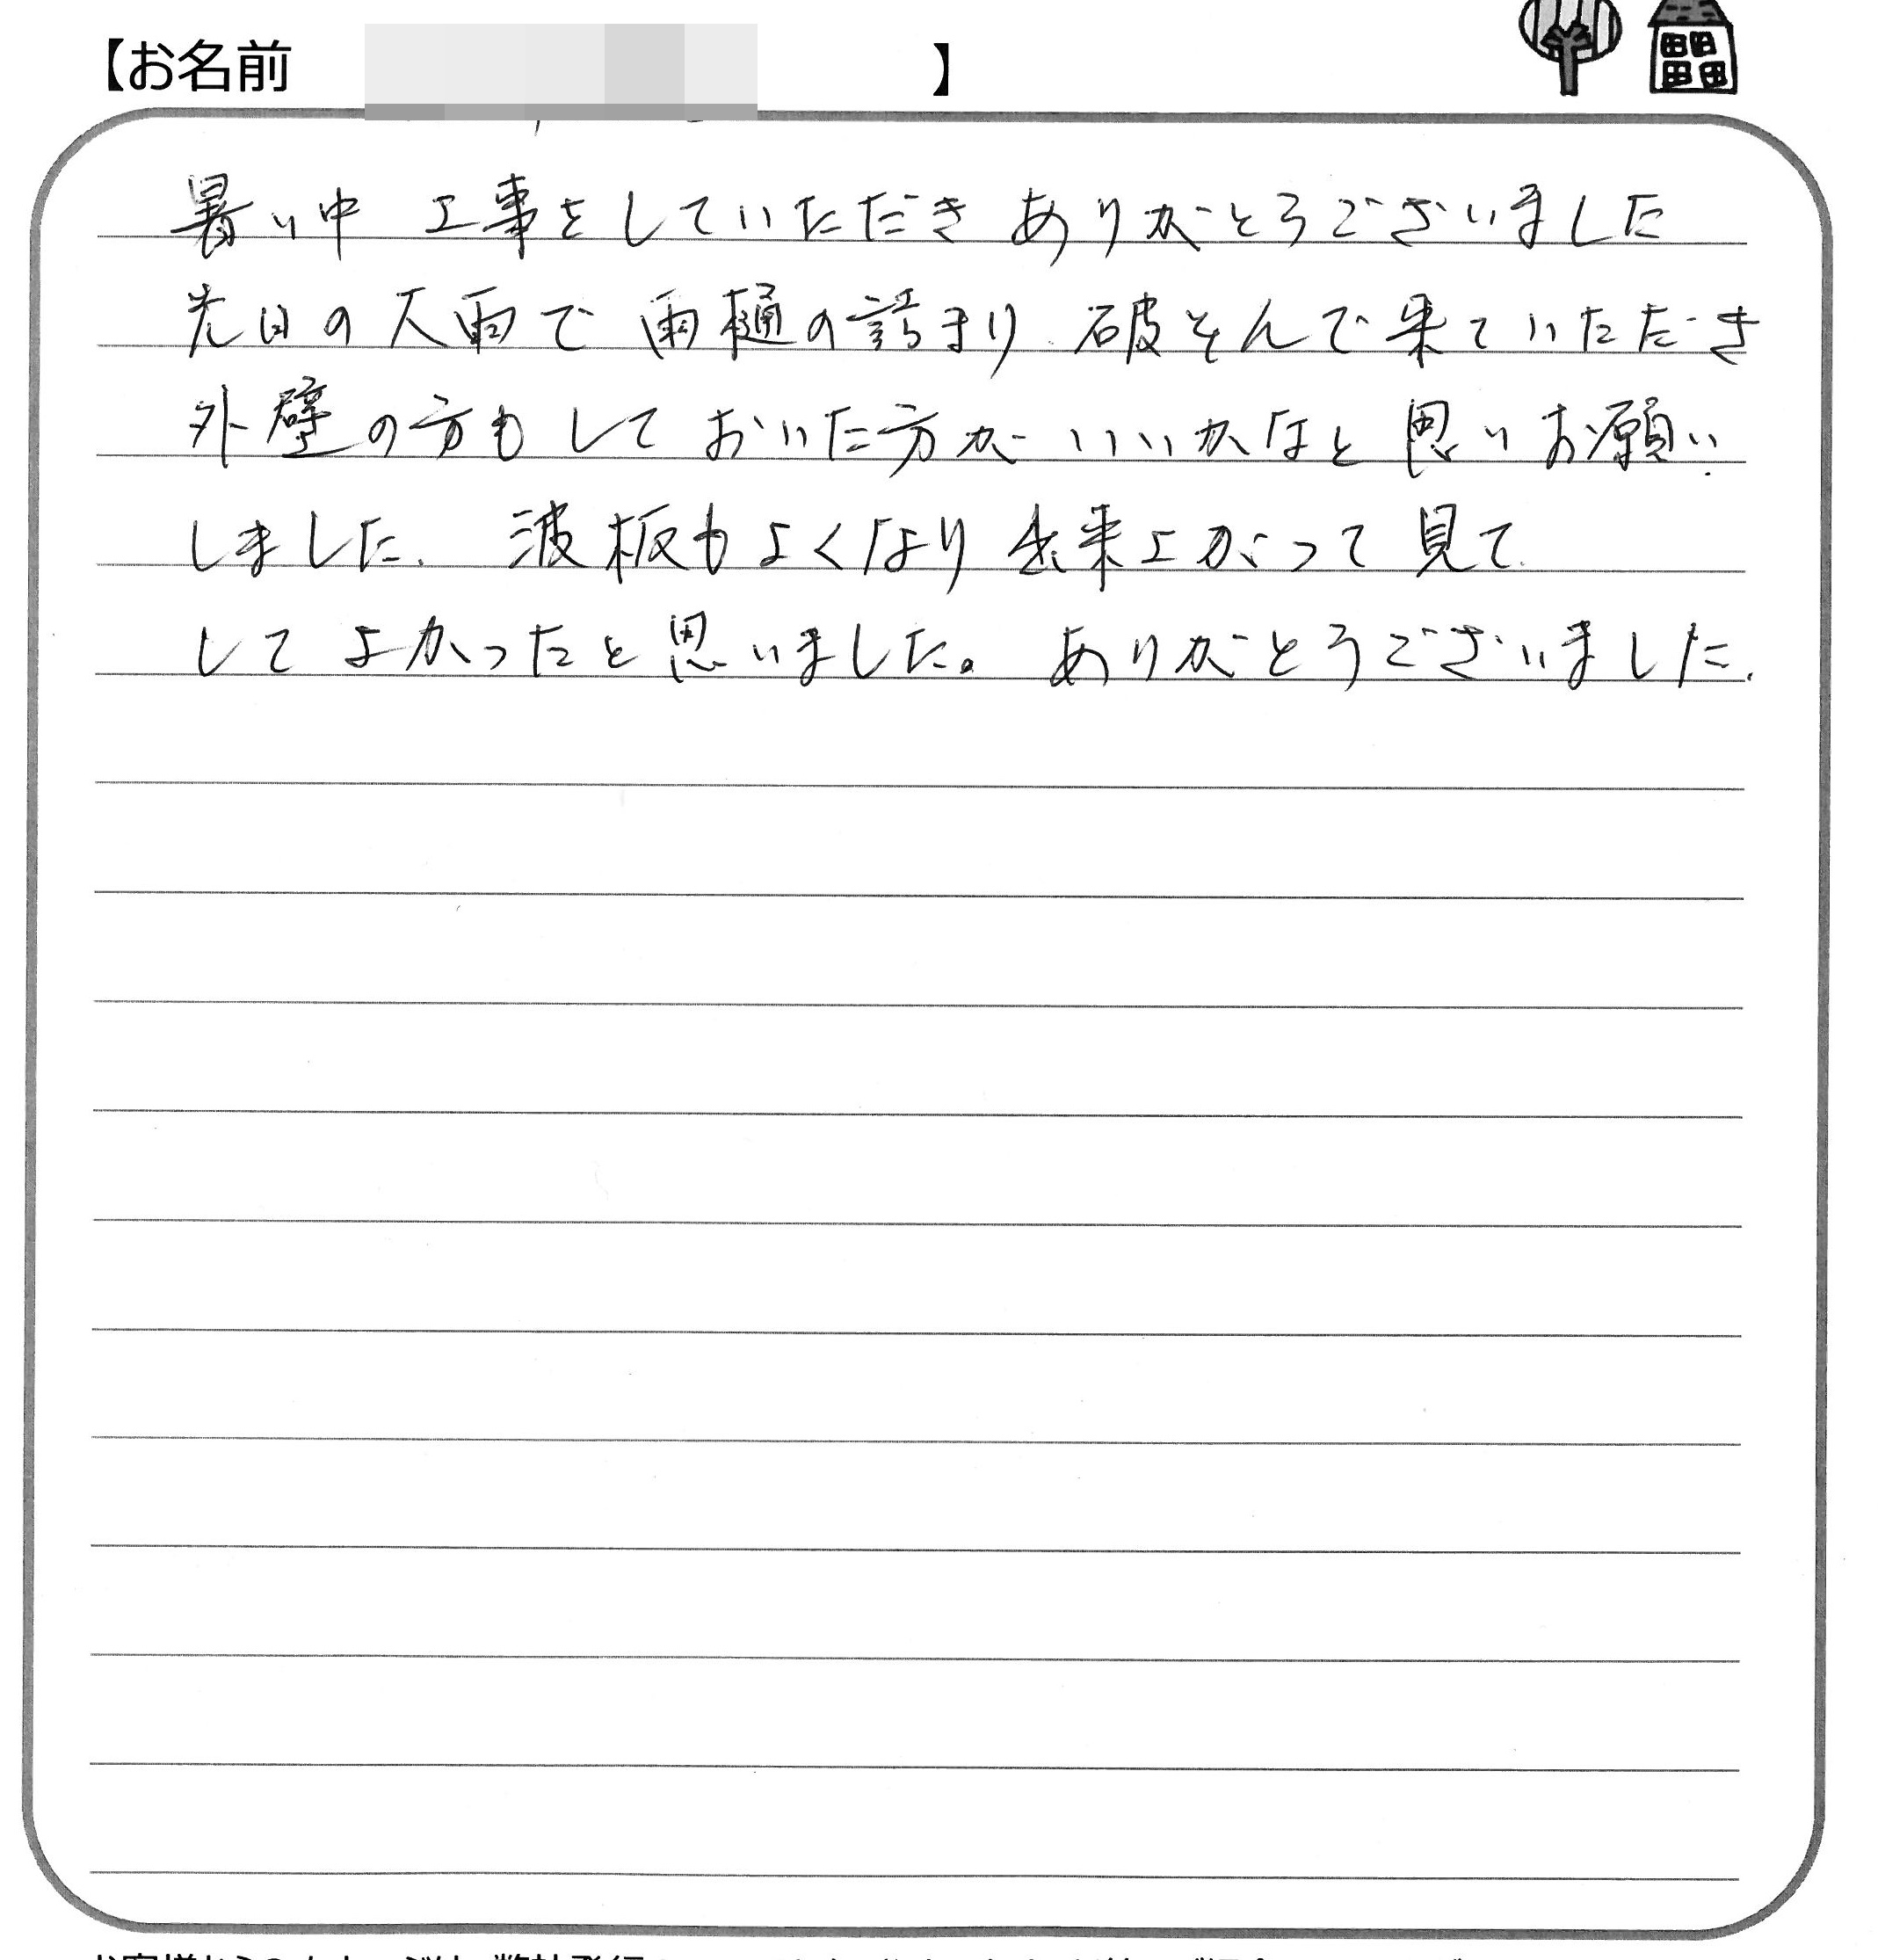 【お名前 】
暑い中 工事をしていただき ありがとうございました
先日の大雨で 雨樋の詰まり 破そんで来ていただき
外壁の方もして おいた方が いいかなと 思いお願い
しました. 波板もよくなり 出来上がって 見て
して よかったと思いました。 ありがとうございました.